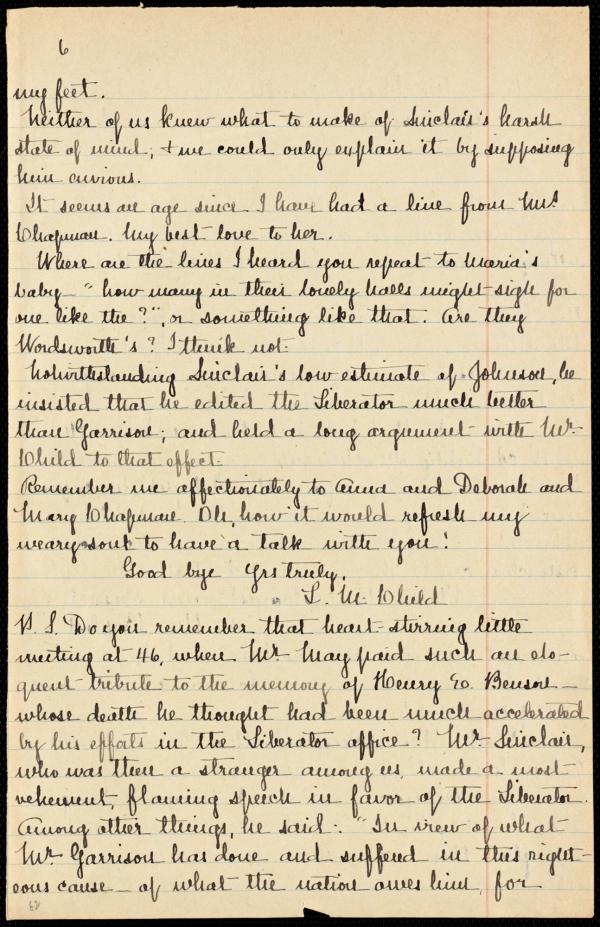 6
my feet.
Neither of us knew what to make of Sinclair's harsh
state of mind; & we could only explain it by supposing
him envious.
It seems an age since I have had a line from Mrs
Chapman. My best love to her.
Where are the lines I heard you repeat to Maria's
baby - "how many in their lonely halls might sigh for
one like the?", or something like that. Are they
Wordsworth's? I think not.
Notwithstanding Sinclair's low estimate of Johnson, he
insisted that he edited the Liberator much better
than Garrison; and held a long argument with Mr.
Child to that effect.
Remember me affectionately to Anna and Deborah and
Mary Chapman. Oh, how it would refresh my
weary soul to have a talk with you!
Good bye Yrs truly,
L. M. Child
P. S. Do you remember that heart-stirring little
meeting at 46, when Mr. May paid such an elo-
quent tribute to the memory of Henry E. Benson -
whose death he thought had been much accelerated
by his efforts in the Liberator office? Mr. Sinclair,
who was then a stranger among us, made a most
vehement, flaming speech in favor of the Liberator.
Among other things, he said: "In view of what
Mr. Garrison has done and suffered in this right-
eous cause - of what the nation owes him, for